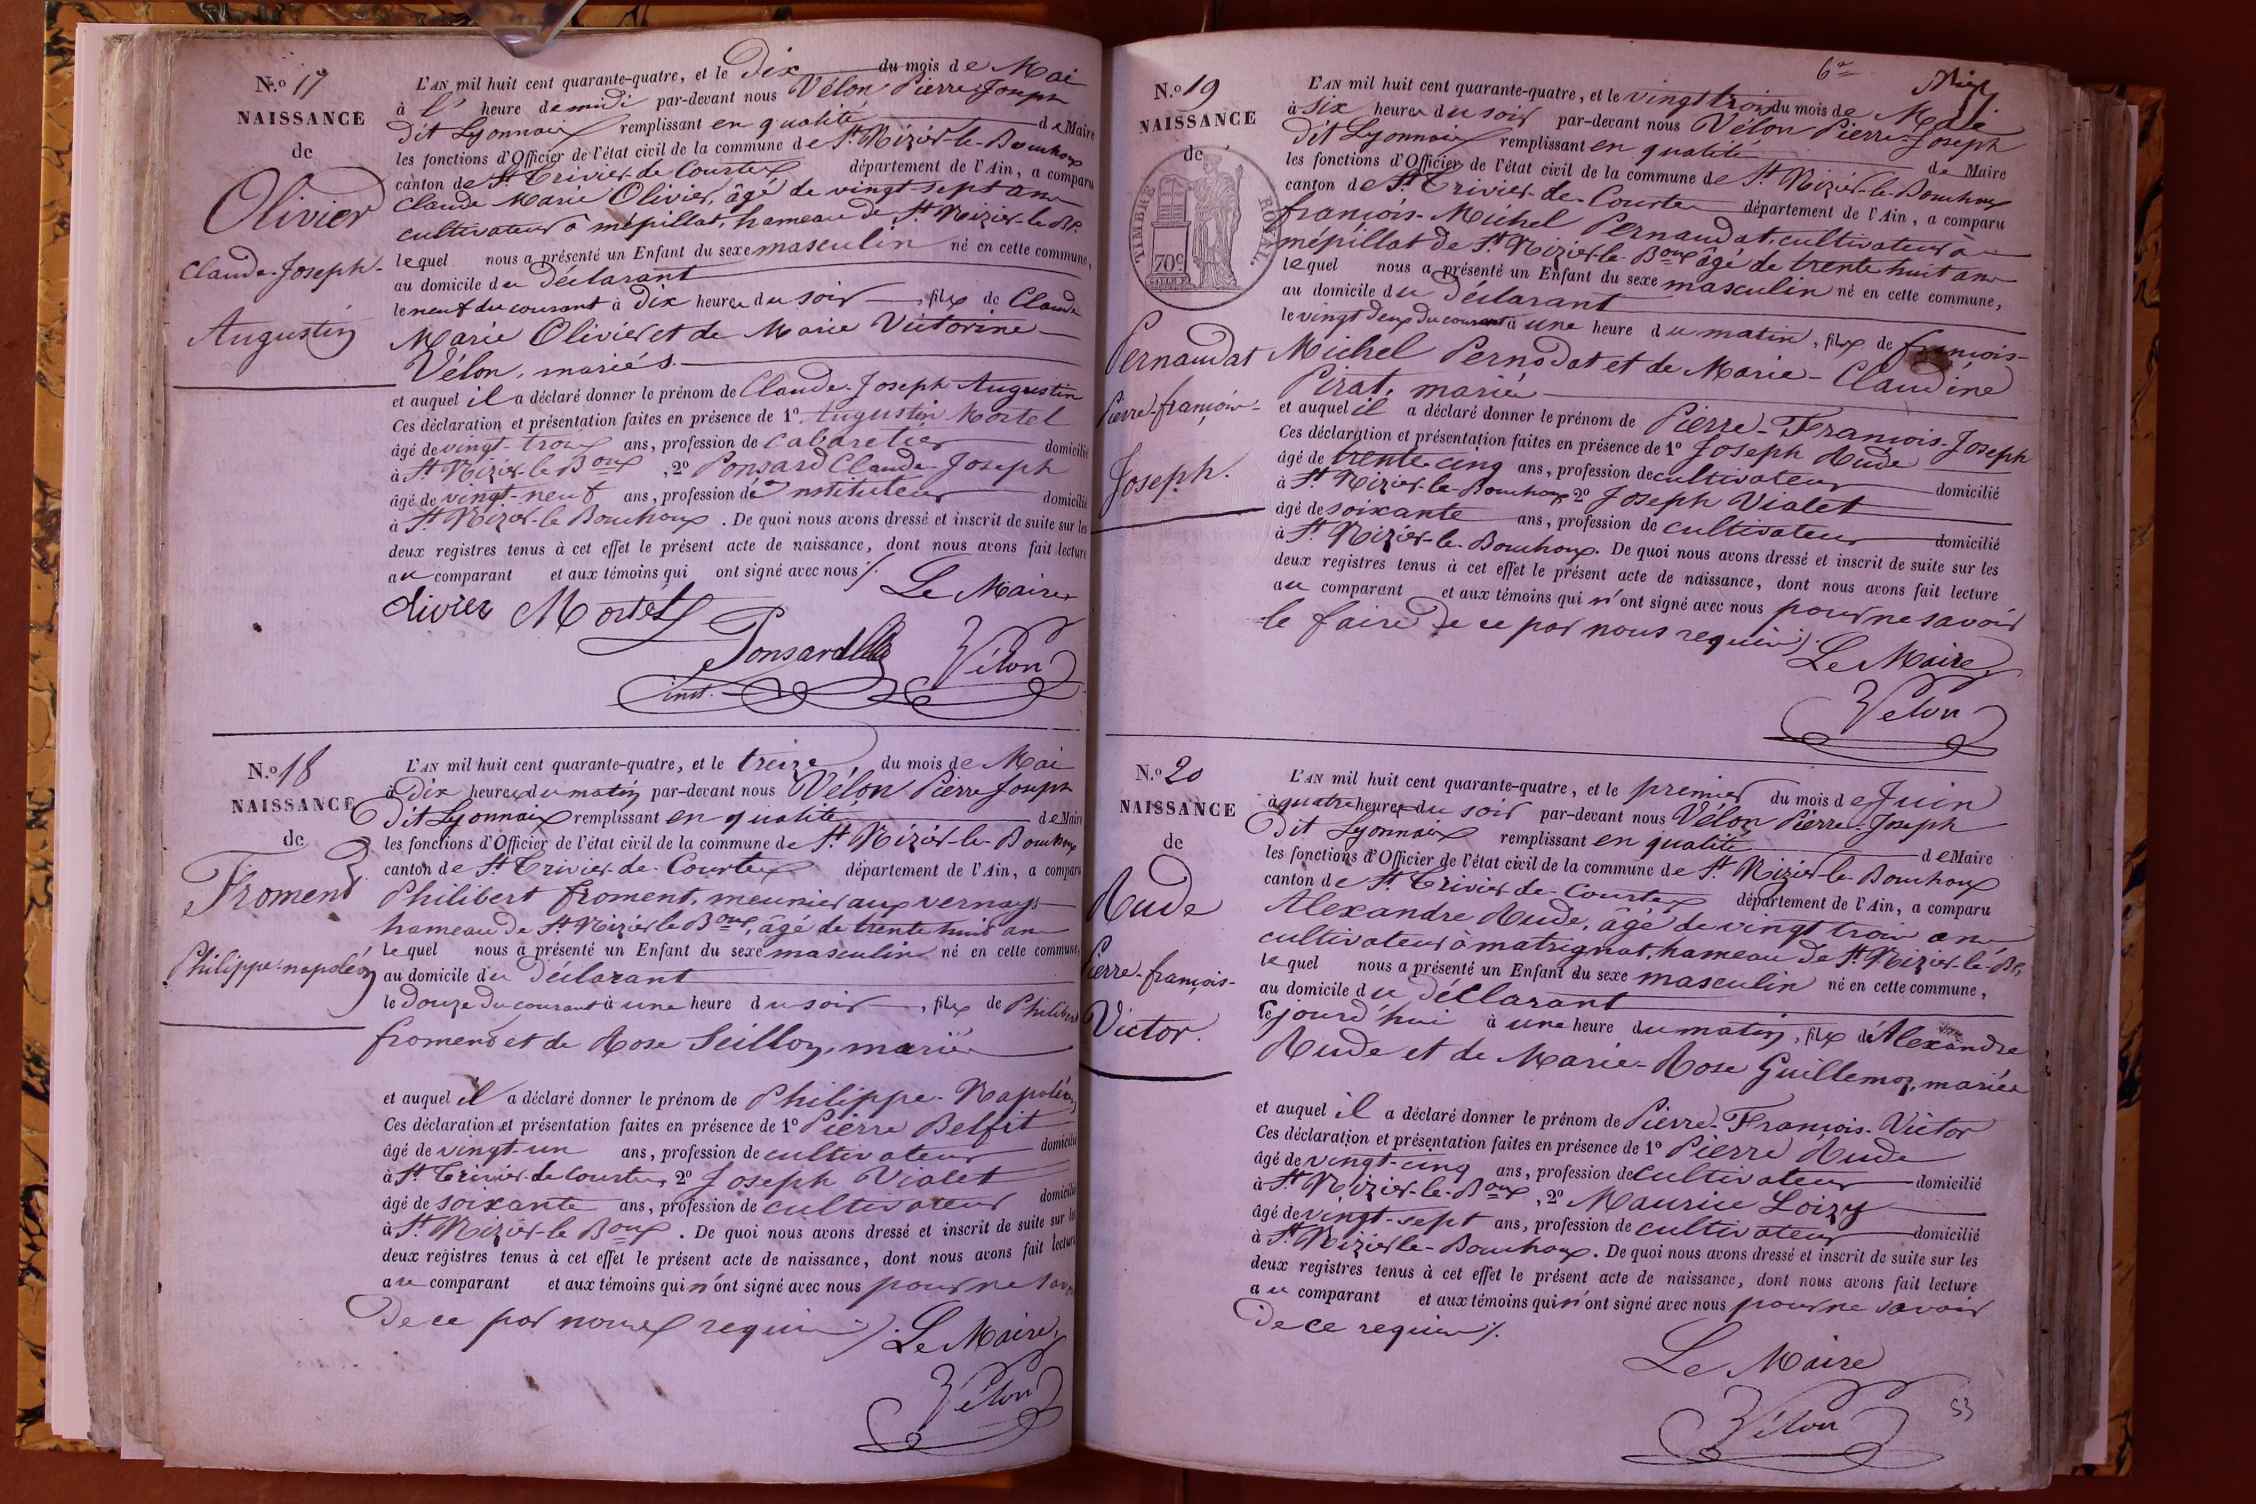 N.o 17
NAISSANCE
de
Olivier
Claude-Joseph-
Augustin
L'AN mil huit cent quarante-quatre, et le Dix du mois de Mai
à l' heure de midi par-devant nous Vélon Pierre Joseph
dit Lyonnais remplissant en qualité de Maire
les fonctions d'Officier de l'état civil de la commune de St. Nizier-le-Bouchoux
canton de St. Trivier de Courtes département de l'Ain, a comparu
Claude Marie Olivier, âgé de vingt sept ans
cultivateur à mépillat, hameau de St. Nizier-le-Bx.
lequel nous a présenté un Enfant du sexe masculin né en cette commune,
au domicile du déclarant
le neuf du courant à Dix heures du soir, fils de Claude
Marie Olivier et de Marie Victorine
Vélon, mariés.
et auquel il a déclaré donner le prénom de Claude-Joseph-Augustin
Ces déclaration et présentation faites en présence de 1o Augustin Mortel
âgé de vingt-trois ans, profession de Cabaretier domicilié
à St. Nizier-le-Boux, 2o Ponsard Claude-Joseph
âgé de vingt-neuf ans, profession d'Instituteur domicilié
à St. Nizier-le Bouchoux. De quoi nous avons dressé et inscrit de suite sur les
deux registres tenus à cet effet le présent acte de naissance, dont nous avons fait lecture
au comparant et aux témoins qui ont signé avec nous /.
Le Maire
Olivier Mortel
Ponsard
inst.
Vélon
N.o 18
NAISSANCE
de
Froment
Philippe-napoléon
L'AN mil huit cent quarante-quatre, et le treize du mois de Mai
à Dix heures du matin par-devant nous Vélon Pierre Joseph
dit Lyonnais remplissant en qualité de Maire
les fonctions d'Officier de l'état civil de la commune de St. Nizier-le-Bouchoux
canton de St. Trivier-de-Courtes département de l'Ain, a comparu
Philibert froment, meunier aux vernays
hameau de St. Nizier le Boux, âgé de trente huit ans
lequel nous a présenté un Enfant du sexe masculin né en cette commune,
au domicile du Déclarant
le Douze du courant à une heure du soir, fils de Philibert
froment et de Rose Seillon, mariés
et auquel il a déclaré donner le prénom de Philippe-Napoléon
Ces déclaration et présentation faites en présence de 1o Pierre Belfit
âgé de vingt-un ans, profession de cultivateur domicilié
à St. Trivier-de-Courtes, 2o Joseph Vialet
âgé de soixante ans, profession de cultivateur domicilié
à St. Nizier-le-Boux. De quoi nous avons dressé et inscrit de suite sur les
deux registres tenus à cet effet le présent acte de naissance, dont nous avons fait lecture
au comparant et aux témoins qui n'ont signé avec nous pour ne savoir
De ce par nous requis /. Le Maire,
Vélon
6e
N.o 19
NAISSANCE
de
TIMBRE ROYAL.
70c
Pernaudat
Pierre-françois-
Joseph.
L'AN mil huit cent quarante-quatre, et le vingt trois du mois de Mai
à six heures du soir par-devant nous Vélon Pierre-Joseph
dit Lyonnais remplissant en qualité de Maire
les fonctions d'Officier de l'état civil de la commune de St. Nizier-le-Bouchoux
canton de St. Trivier-de-Courtes département de l'Ain, a comparu
françois-Michel Pernaudat, cultivateur à
mépillat de St. Nizier-le-Boux âgé de trente huit ans
lequel nous a présenté un Enfant du sexe masculin né en cette commune,
au domicile du Déclarant
le vingt deux du courant à une heure du matin, fils de françois-
Michel Pernodat et de Marie-Claudine
Pirat, mariés
et auquel il a déclaré donner le prénom de Pierre-François-Joseph
Ces déclaration et présentation faites en présence de 1o Joseph Rude
âgé de trente-cinq ans, profession de cultivateur domicilié
à St. Nizier-le-Bouchoux 2o Joseph Vialet
âgé de soixante ans, profession de cultivateur domicilié
à St. Nizier-le-Bouchoux. De quoi nous avons dressé et inscrit de suite sur les
deux registres tenus à cet effet le présent acte de naissance, dont nous avons fait lecture
au comparant et aux témoins qui n'ont signé avec nous pour ne savoir
le faire De ce par nous requis /.
Le Maire
Vélon
N.o 20
NAISSANCE
de
Rude
Pierre-françois-
Victor.
L'AN mil huit cent quarante-quatre, et le premier du mois de Juin
à quatre heures du soir par-devant nous Vélon Pierre-Joseph
dit Lyonnais remplissant en qualité de Maire
les fonctions d'Officier de l'état civil de la commune de St. Nizier-le-Bouchoux
canton de St. Trivier-de-Courtes département de l'Ain, a comparu
Alexandre Rude, âgé de vingt trois ans
cultivateur à matrignat, hameau de St. Nizier-le-Bx.
lequel nous a présenté un Enfant du sexe masculin né en cette commune,
au domicile du Déclarant
ce jourd'hui à une heure du matin, fils de Alexandre
Rude et de Marie-Rose Guillemoz, mariés
et auquel il a déclaré donner le prénom de Pierre-François-Victor
Ces déclaration et présentation faites en présence de 1o Pierre Rude
âgé de vingt-cinq ans, profession de cultivateur domicilié
à St. Nizier-le-Boux, 2o Maurice Loizy
âgé de vingt-sept ans, profession de cultivateur domicilié
à St. Nizier le-Bouchoux. De quoi nous avons dressé et inscrit de suite sur les
deux registres tenus à cet effet le présent acte de naissance, dont nous avons fait lecture
au comparant et aux témoins qui n'ont signé avec nous pour ne savoir
De ce requis /.
Le Maire
Vélon
53